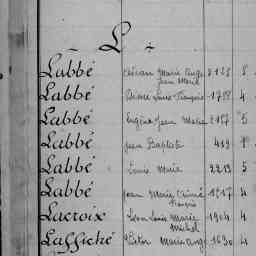 L
Labbé Marie Ange 2125 5
Jean Marie
Labbé Pierre Louis François 1788 4
Labbé Eugène Jean Marie 2157 5
Labbé Jean Baptiste 449
Labbé Louis Marie 2213 5
Labbé Jean Marie Aimé 1817 4
François
Lacroix Louis Marie 1904 4
Michel
Laffiché Victor Marie Ange 1630 4